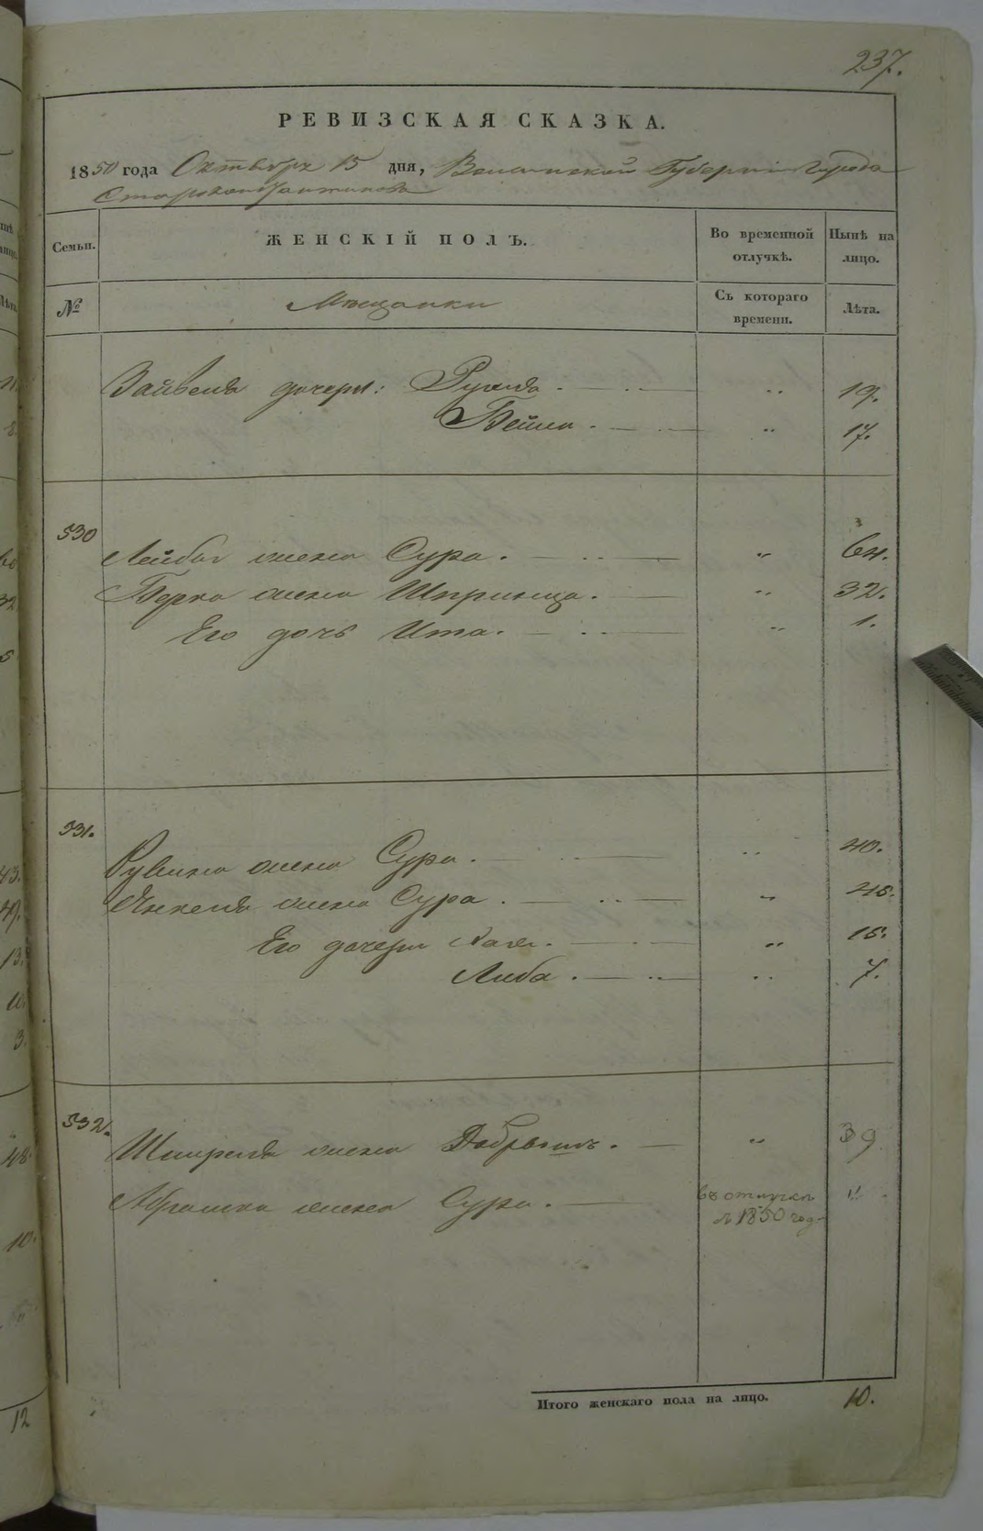 237.
РЕВИЗСКАЯ СКАЗКА.
1850 года Октября 15 дня, Волынской Губерніи Города
Староконстантинова
Семьи. ЖЕНСКІЙ ПОЛЪ. Во временной отлучкѣ. Нынѣ на лицо.
№ Мещанки Съ котораго времени. Лѣта.
Зайвеля дочери: Рухля „ 19.
Бейла „ 17.
530
Лейбы жена Сура. „ 64.
Берка жена Шпринца. „ 32.
Его дочь Ита. „ 1.
531.
Рувина жена Сура. „ 40.
Янкеля жена Сура. „ 45.
Его дочери „ 15.
Либа. „ 7.
532.
Шмереля жена Добрышъ. „ 39
Абрамка жена Сура. въ отлучкѣ „.
съ 1850 год
Итого женскаго пола на лицо. 10.
12